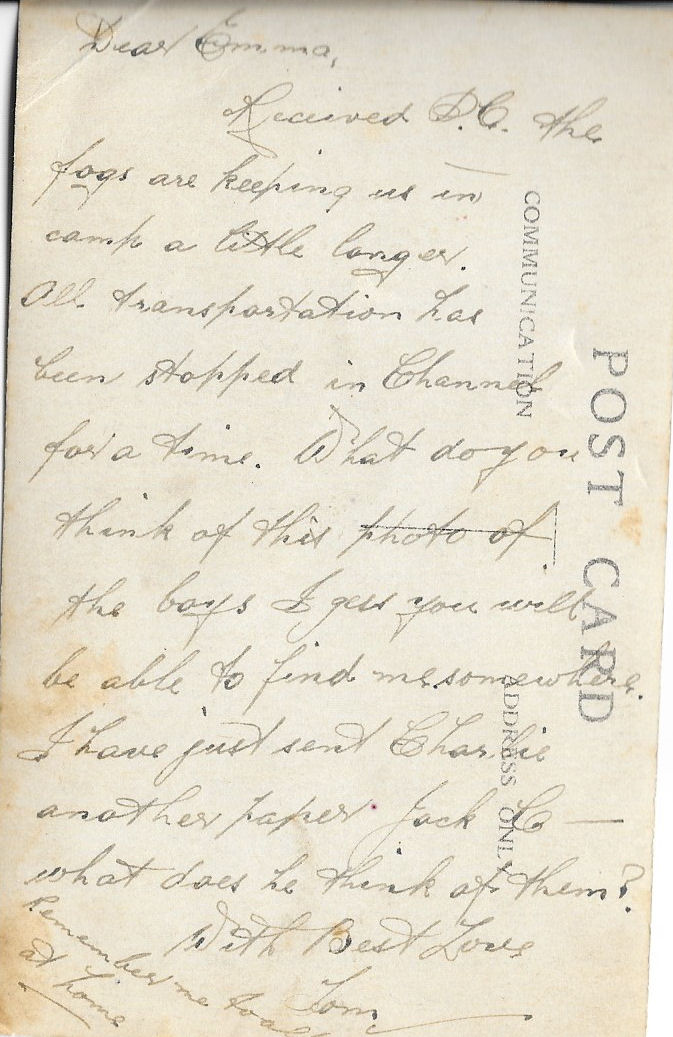 Dear Emma,
Received P.C. the
fogs are keeping us in
camp a little longer.
All transportation has
been stopped in Channel
for a time. What do you
think of this photo of
the boys I gess you will
be able to find me somewhere.
I have just sent Charlie
another paper Jack C —
what does he think of them?
With Best Love
Tom
Remember me to all
at home
POST CARD
COMMUNICATION
ADDRESS ONLY